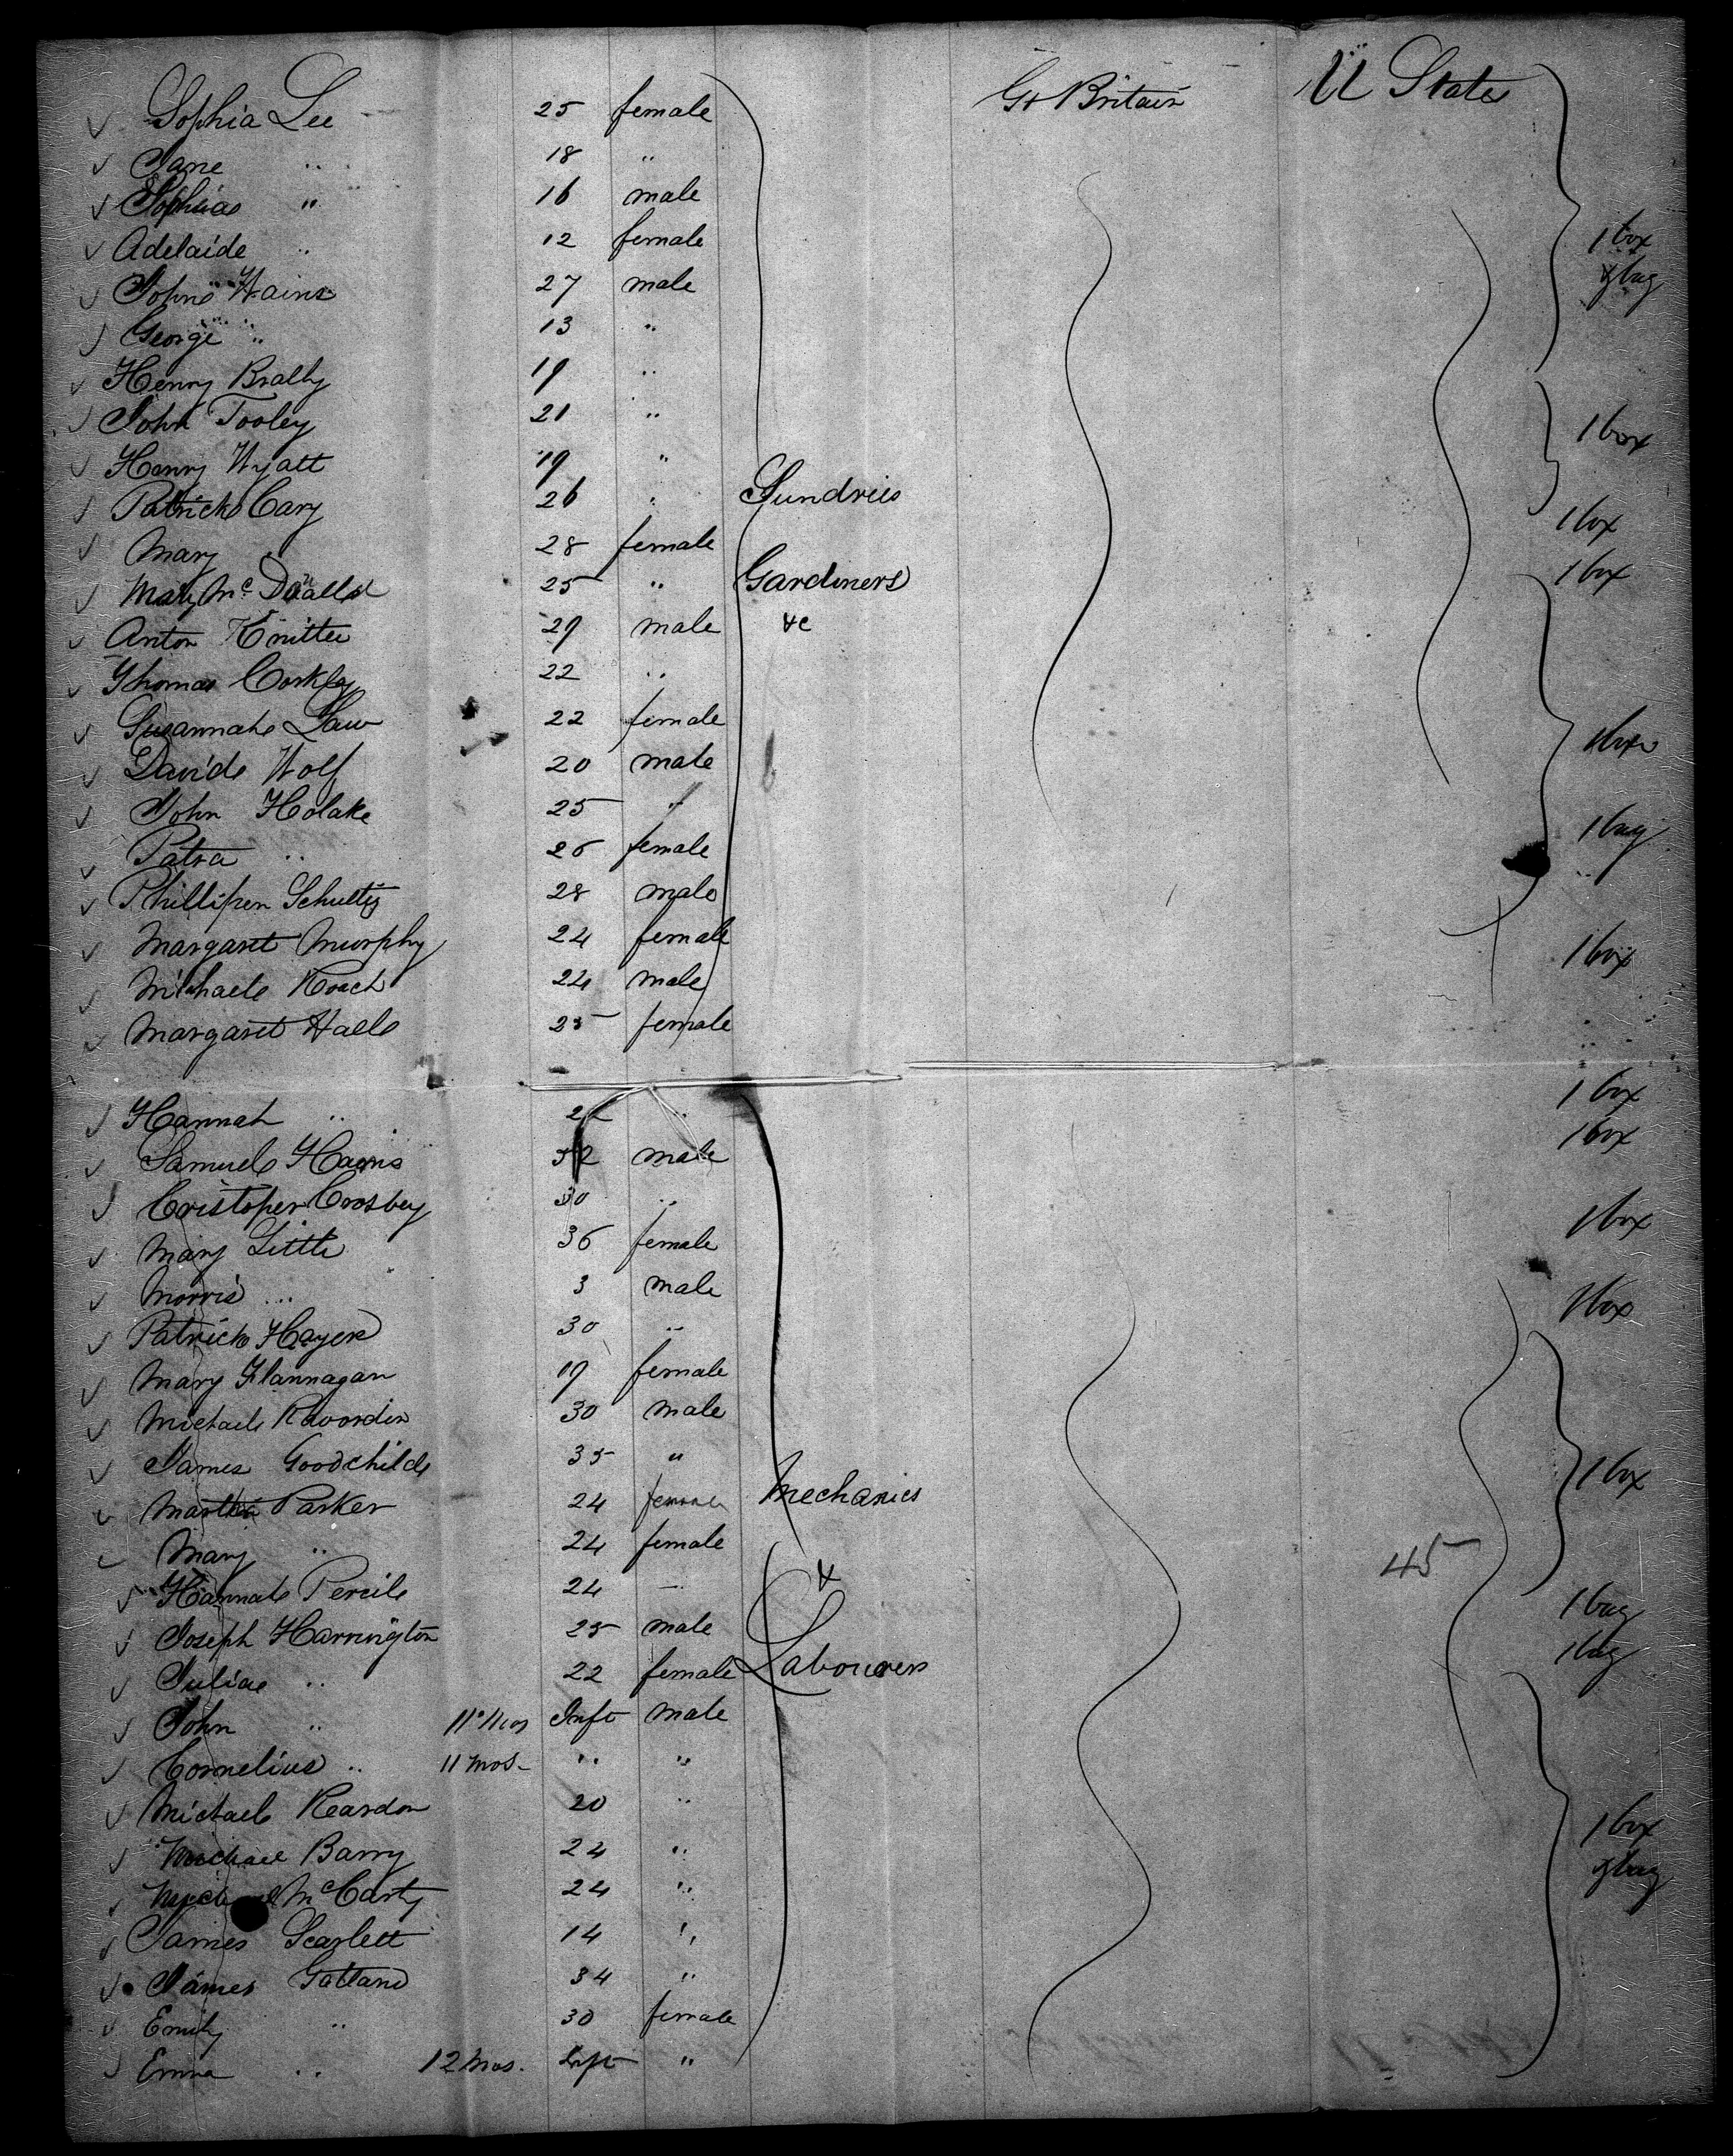 Sophia Lee 25 female Gt Britain U States
Jane " 18 "
Sophia " 16 male
Adelaide " 12 female 1 box
John Hains 27 male & bag
George " 13 "
Henry Bralby 19 "
John Tooley 21 " 1 box
Henry Wyatt 19 "
Patrick Cary 26 " Sundries 1 box
Mary " 28 female
Mary Mc Donalld 25 " Gardiners 1 box
Anton Knitter 29 male &c
Thomas Corkley 22 "
Susannah Law 22 female 1 box
David Wolf 20 male
John Holake 25 " 1 bag
Patra " 26 female "
Phillipen Schultis 28 male
Margaret Murphy 24 female 1 box
Michael Roach 24 male
Margaret Hall 25 female
Hannah " " 1 box
Samuel Harris male 1 box
Cristoper Crosbey 30 " 1 box
Mary Little 36 female
Morris " 3 male 1 box
Patrick Hayes 30 "
Mary Flannagan 19 female
Michael 30 male
James Goodchild 35 " 1 box
Parker 24 Mechanics
Mary " 24 female 45
Hannah 24 " & 1 bag
Joseph Harrington 25 male 1 bag
Julia " 22 female Labourers
John " 11 mos Inft male
Cornelius " 11 mos- " "
Michael Reardon 20 " 1 box
Michael Barry 24 " & bag
Michael McCarty 24 "
James Scarlett 14 "
James Gatland 34 "
Emily " 30 female
Emma " 12 mos. Inft "